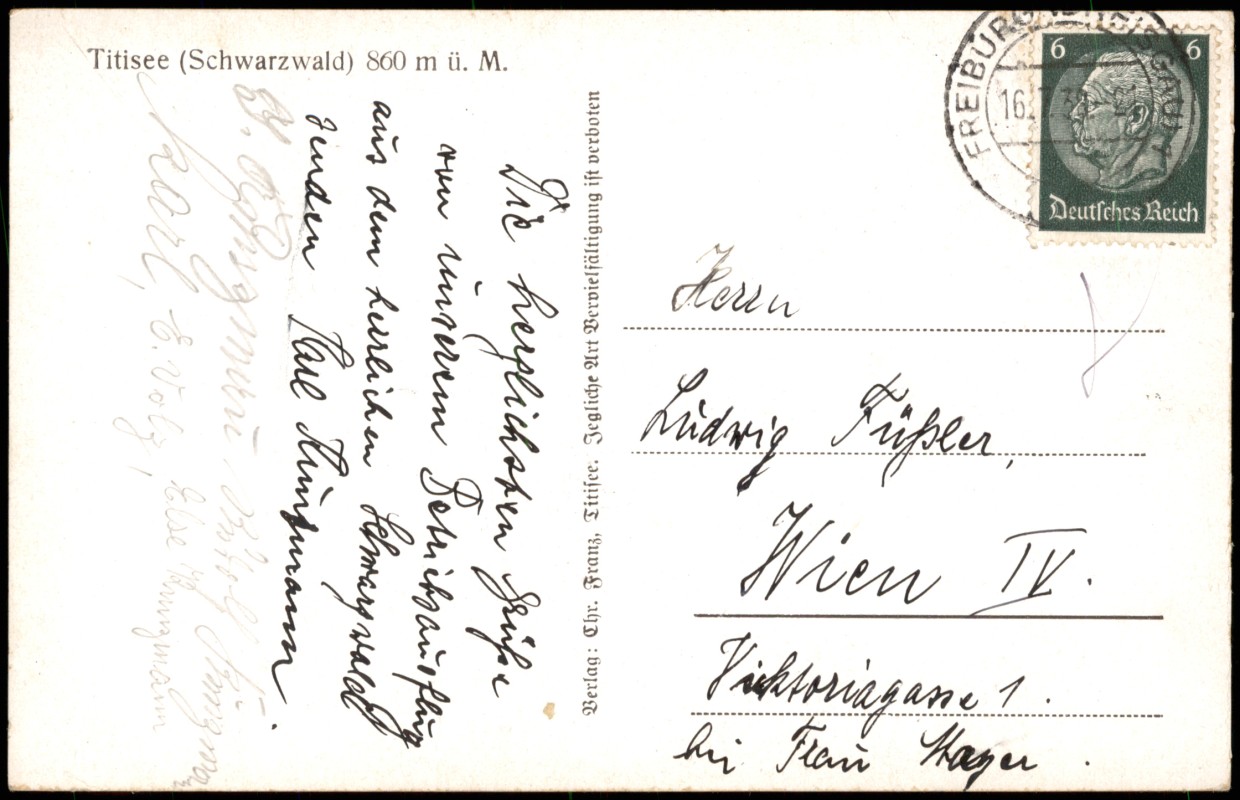 Titisee (Schwarzwald) 860 m ü. M.
Die herzlichsten Grüße
von unserem Betriebsausflug
aus dem herrlichen Schwarzwald
senden Karl Künzmann.
Karl, E. Volz, Else Künzmann
Verlag: Chr. Franz, Titisee. Jegliche Art Vervielfältigung ist verboten
FREIBURG
16.
6 6
Deutsches Reich
Herrn
Ludwig Füßler,
Wien IV.
Viktoriagasse 1.
bei Frau Mayer.